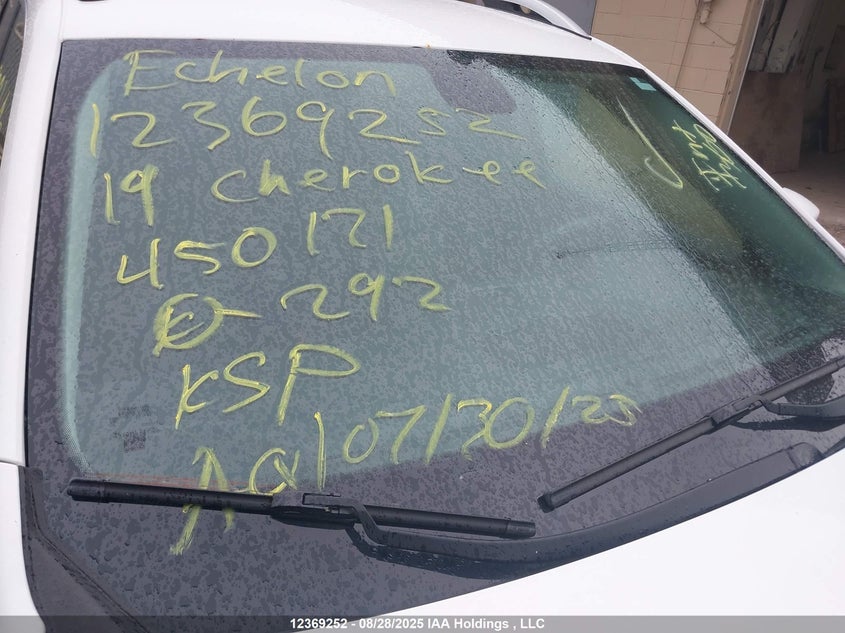 Echelon
12369252
19 cherokee
450171
E-292
KSP
07/30/25
12369252 - 08/28/2025 IAA Holdings , LLC